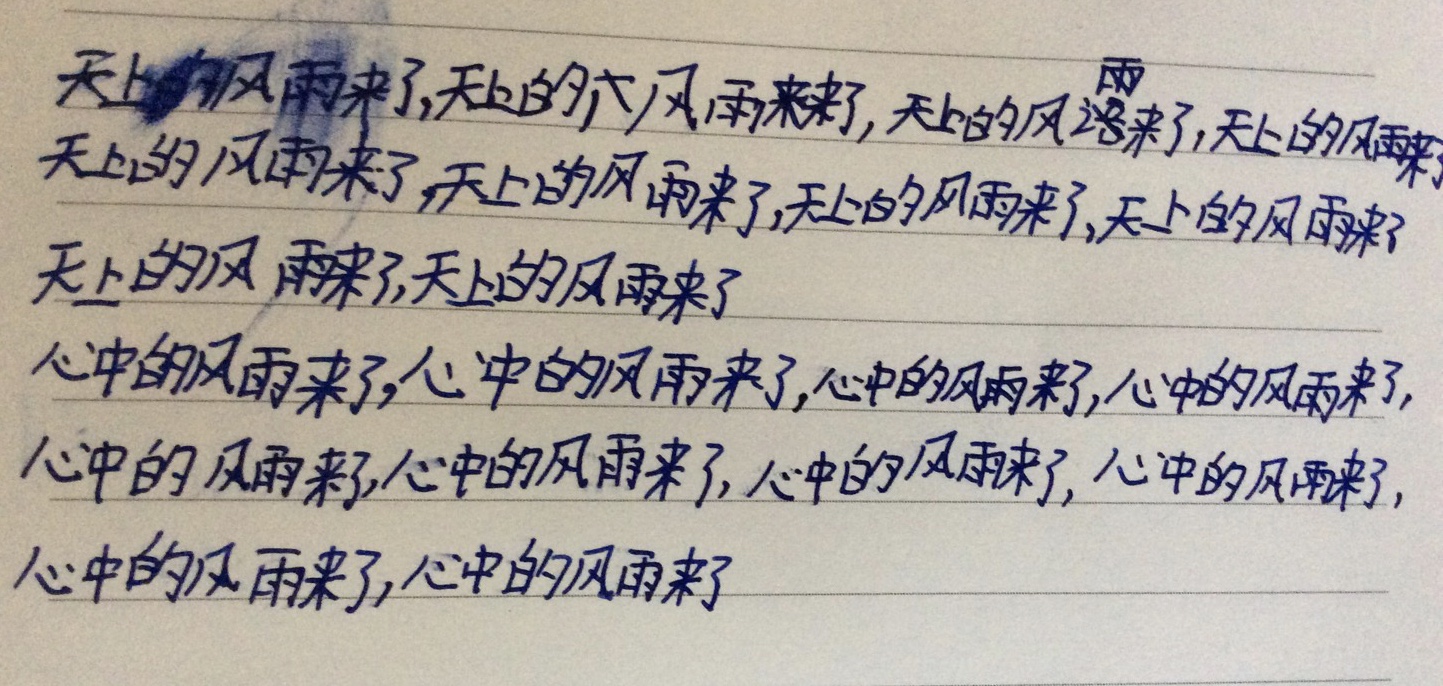 天上的风雨来了,天上的六风雨来来了,天上的风雨来了,天上的风雨来了
天上的风雨来了,天上的风雨来了,天上的风雨来了,天上的风雨来了
天上的风雨来了,天上的风雨来了
心中的风雨来了,心中的风雨来了,心中的风雨来了,心中的风雨来了,
心中的风雨来了,心中的风雨来了,心中的风雨来了,心中的风雨来了,
心中的风雨来了,心中的风雨来了